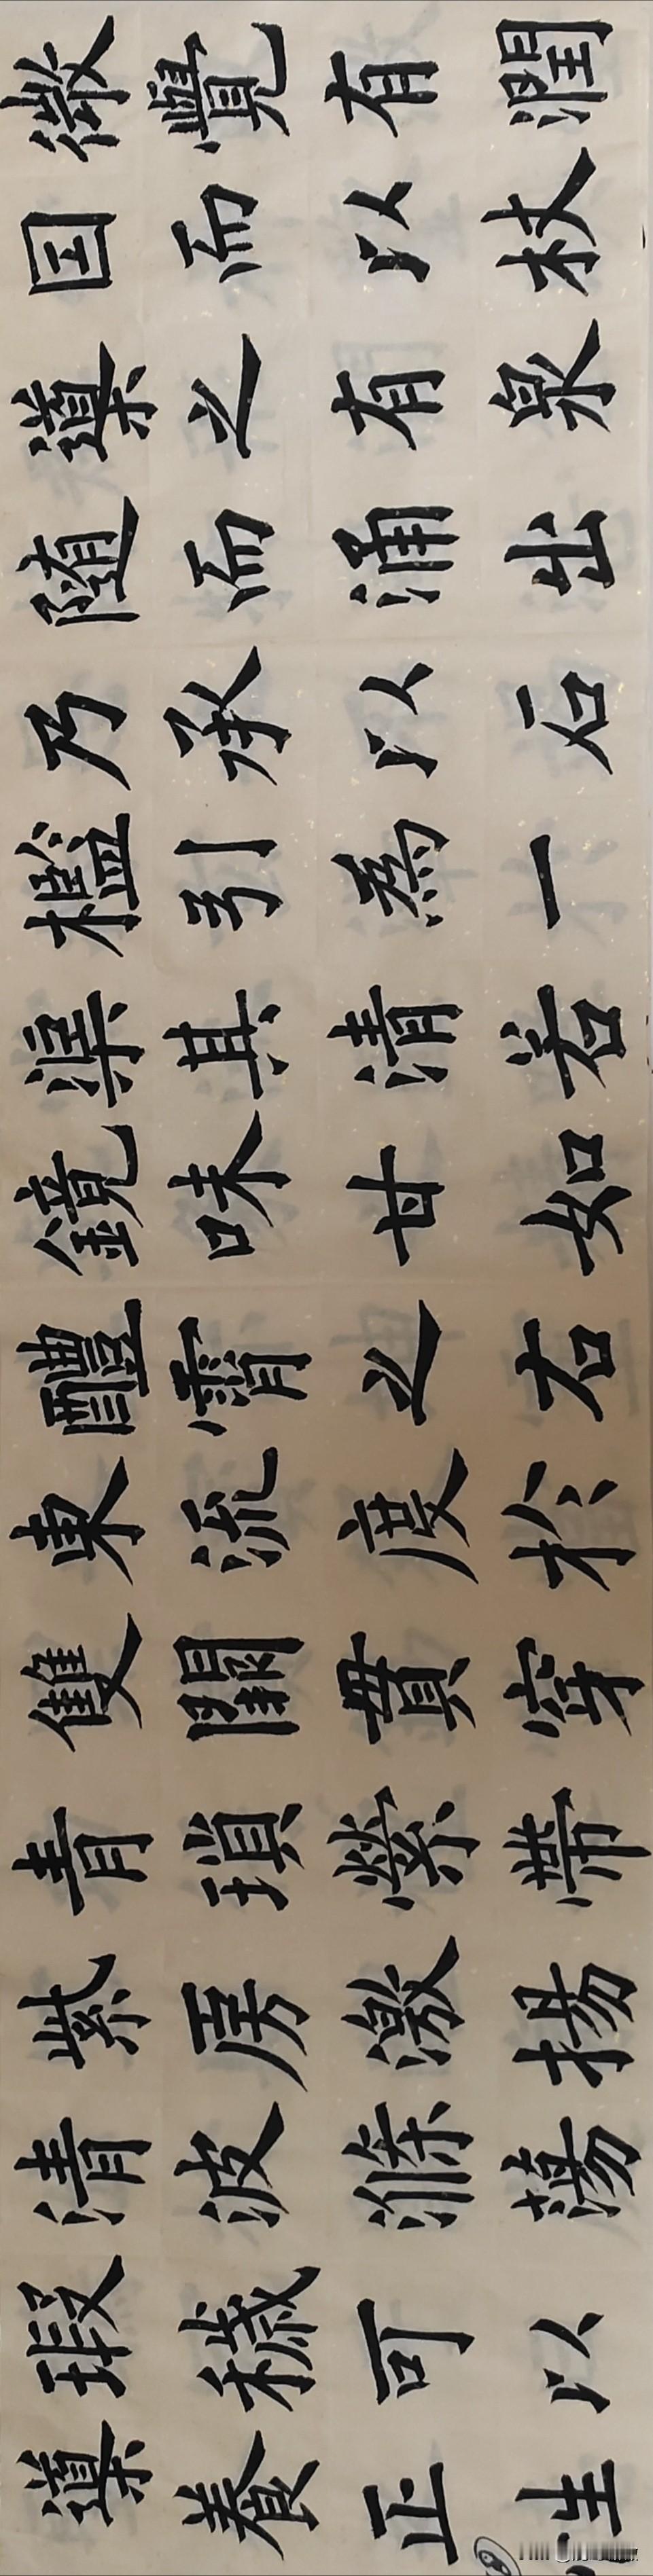 微覺有潤
因而以杖
導之有泉
随而涌出
乃承以石
檻引為一
渠其清若
鏡味甘如
醴霄之右
東流度於
雙闕貫穿
青瑣縈帶
紫房激揚
清波滌蕩
瑕穢可以
導養正性